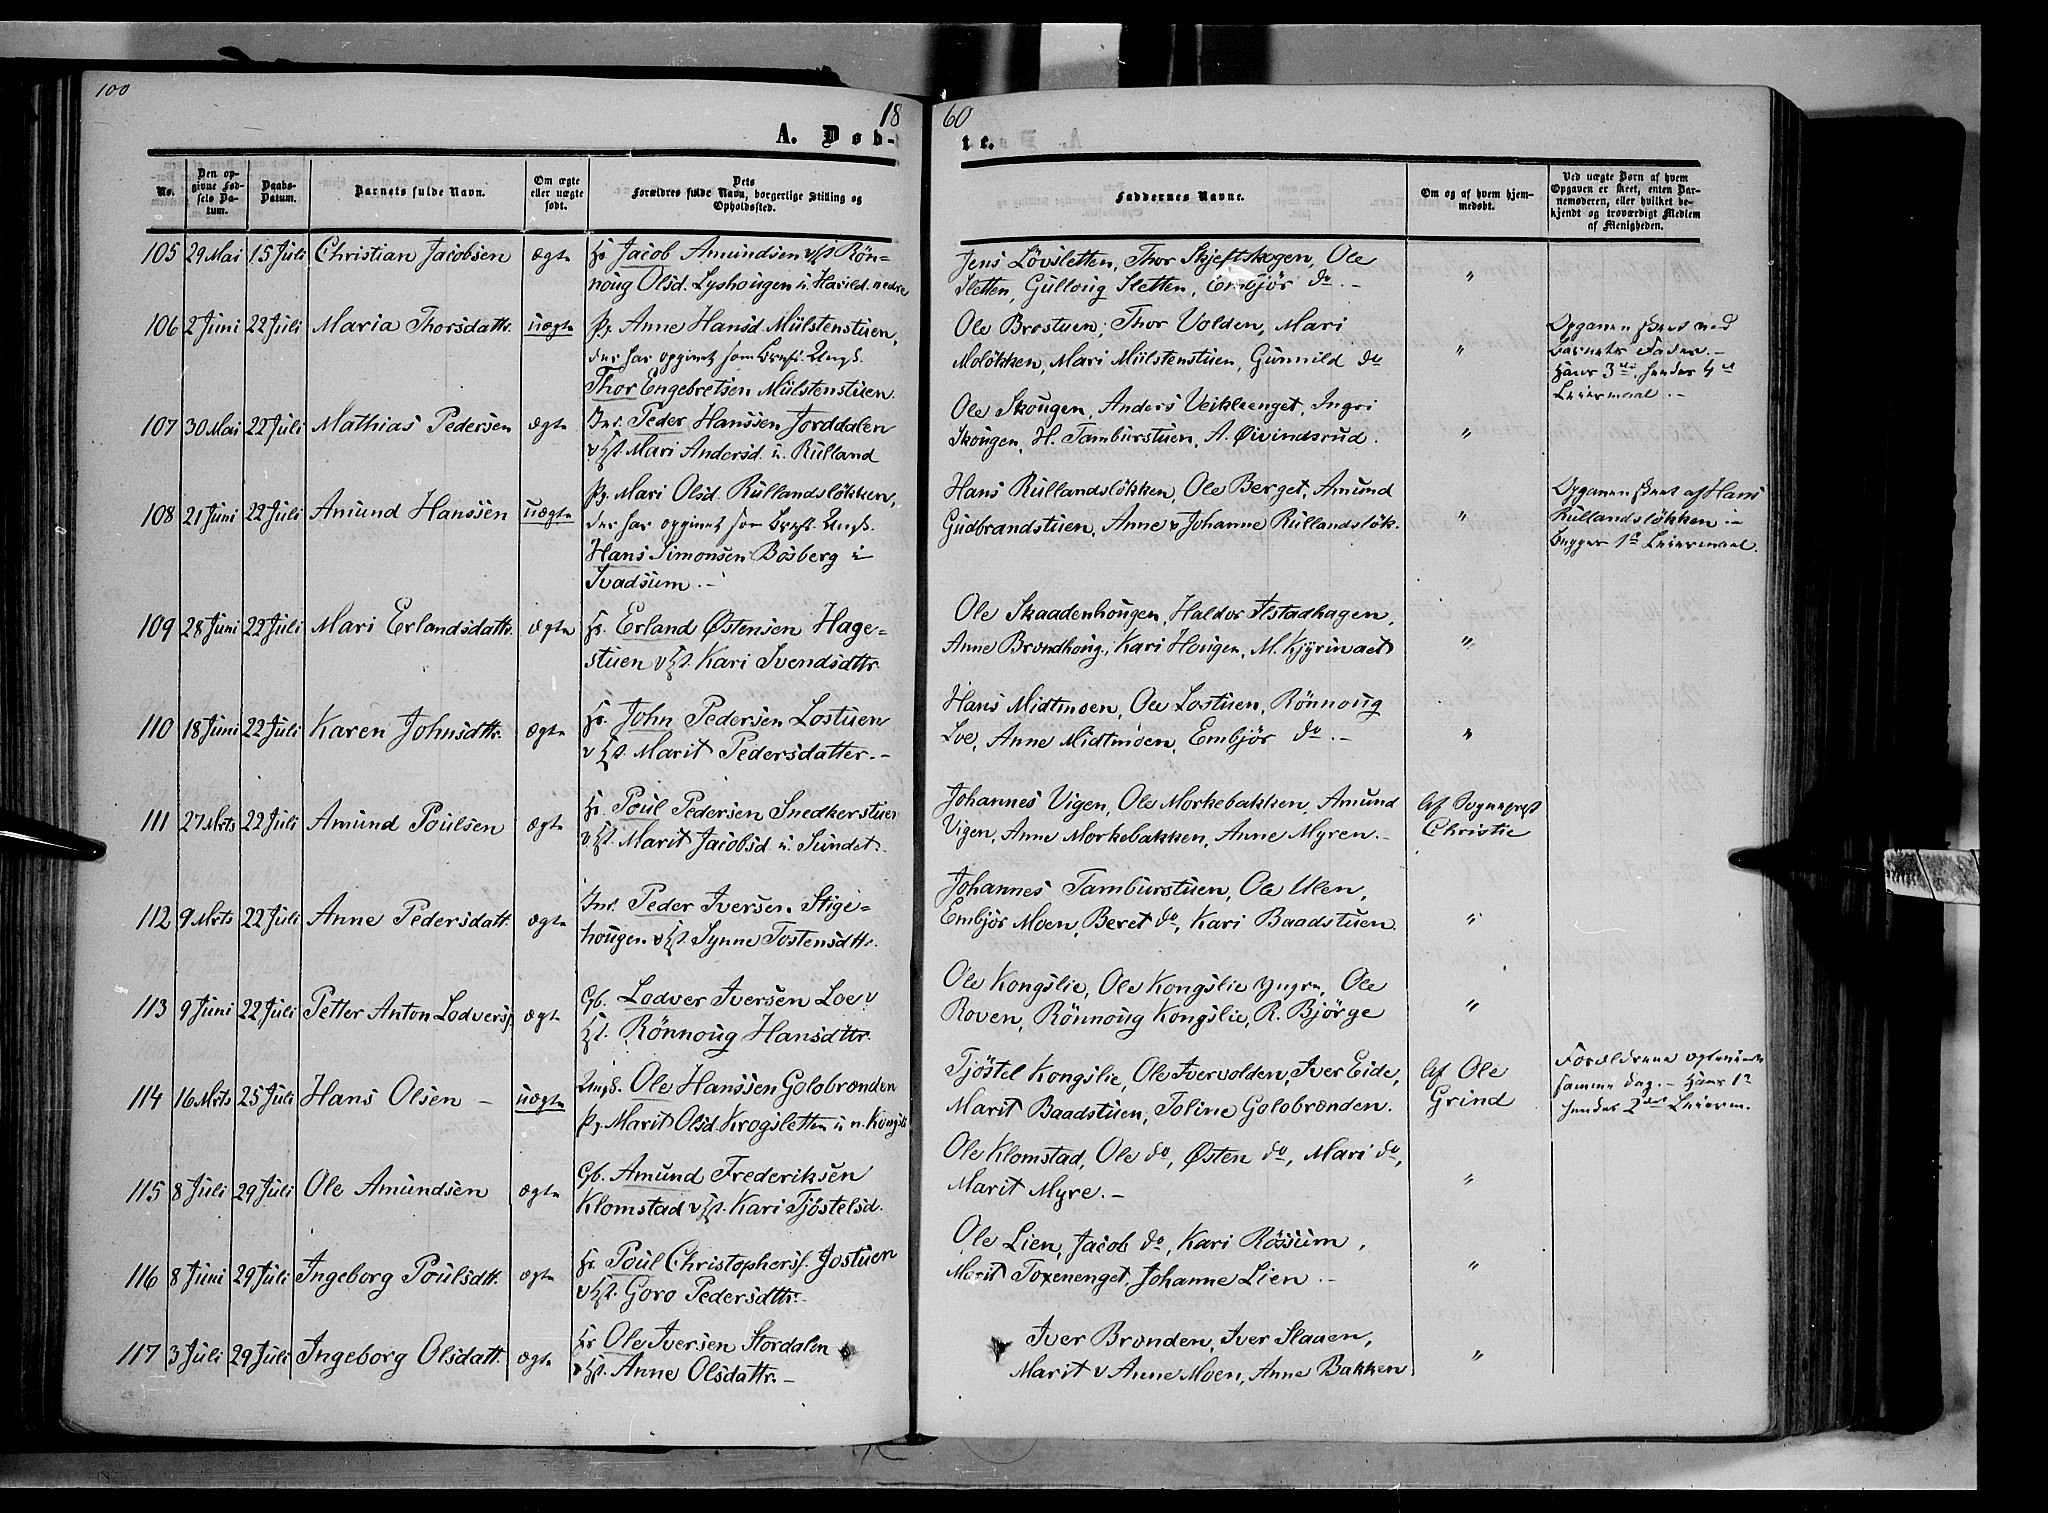 100
18
60
A. Døb-
te.
No.
Den op-
givne Fød-
sels Da-
tum.
Daabs-
Datum.
Barnets fulde Navn.
Om ægte
eller uægte
født.
Dets
Forældres fulde Navn, borgerlige Stilling og
Opholdssted.
Faddernes Navne.
Om og af hvem hjem-
medøbt.
Ved uægte Børn af hvem
Opgaven er skeet, enten Bar-
nemoderen, eller hvilket be-
kjendt og troværdigt Medlem
af Menigheden.
105 29 Mai 15 Juli Christian Jacobsen ægte Hr Jacob Amundsen v Hst Rön-
noug Olsd. Lyshougen u. Harild. nedre
Jens Lövsletten, Thor Skjeftskogen, Ole
Sletten, Gulloug Sletten, Embjör do. —
"
106 2 Juni 22 Juli Maria Thorsdattr. uægte Pg. Anne Hansd. Mülstenstuen,
der har opgivet som Brnf. Ungk.
Thor Engebretsen Mülstenstuen.
Ole Brostuen, Thor Volden, Mari
Molökken, Mari Mülstenstuen, Gunnild do
"
Opgaven skeet ved
Barnets Fader. —
Hans 3die, hendes 4de
Leiermaal. —
107 30 Mai 22 Juli Mathias Pedersen ægte Inr. Peder Hanssen Jorddalen
v Hst. Mari Andersd. u. Rulland
Ole Skougen, Anders Veikleenget, Ingri
Skougen, H. Tamburstuen, A. Øivindsrud.
"
108 21 Juni 22 Juli Amund Hanssen uægte Pg. Mari Olsd. Rullandslökken,
der har opgivet som Brnf. Ungk.
Hans Simonsen Bösberg i
Svadsum. —
Hans Rullandslökken, Ole Berget, Amund
Gudbrandstuen, Anne v Johanne Rullandslök.
"
Opgaven skeet af Hans
Rullandslökken —
Begges 1ste Leiermaal.
109 28 Juni 22 Juli Mari Erlandsdattr. ægte Hr. Erland Østensen Hage-
stuen v Hst. Kari Svendsdttr.
Ole Skaadenhougen, Haldor Ilstadhagen,
Anne Brændhoug., Kari Hougen, M.
"
110 18 Juni 22 Juli Karen Johnsdttr. ægte Hr. John Pedersen Lostuen
v Hst. Marit Pedersdatter. —
Hans Midtmoen, Ole Lostuen, Rönnoug
Loe, Anne Midtmoen, Embjör do. —
"
111 27 Mrts 22 Juli Amund Poulsen ægte Hr. Poul Pedersen Snedkerstuen
v Hst. Marit Jacobsd. u. Sundet.
Johannes Vigen, Ole Morkebakken, Amund
Vigen, Anne Morkebakken, Anne Myren. —
Af Sognepræst
Christie
112 9 Mrts 22 Juli Anne Pedersdatt. ægte Inr. Peder Iversen Stige-
hougen v Hst. Synne Tostensdttr.
Johannes Tamburstuen, Ole Ulen,
Embjör Moen, Beret do, Kari Baadstuen.
"
113 9 Juni 22 Juli Petter Anton Lodvers. ægte Gb. Lodver Iversen Loe v
Hst. Rönnoug Hansdttr.
Ole Kongslie, Ole Kongslie yngre, Ole
Roven, Rönnoug Kongslie, R. Bjørge
"
114 16 Mrts 25 Juli Hans Olsen — uægte Ungk. Ole Hanssen Golobrænden
Pg. Marit Olsd. Krogsletten u n. Kongsl.
Tjöstel Kongslie, Ole Ivervolden, Iver Eide,
Marit Baadstuen, Toline Golobrænden.
Af Ole
Grind
Forældrene ægteviede
samme Dag. — Hans 1ste
hendes 2det Leierm.
115 8 Juli 29 Juli Ole Amundsen ægte Gb. Amund Frederiksen
Klomstad v Hst. Kari Tjöstelsd.
Ole Klomstad, Ole do, Østen do, Mari do,
Marit Myre. —
"
116 8 Juni 29 Juli Ingeborg Poulsdtt. ægte Hr. Poul Christophers. Jostuen
v Hst. Goro Pedersdttr.
Ole Lien, Jacob do, Kari Røssum,
Marit Toxenenget, Johanne Lien. —
"
117 3 Juli 29 Juli Ingeborg Olsdatt. ægte Hr Ole Iversen Stordalen
v Hst. Anne Olsdattr. —
Iver Brænden, Iver Slaaen,
Marit v Anne Moen, Anne Bakken
"